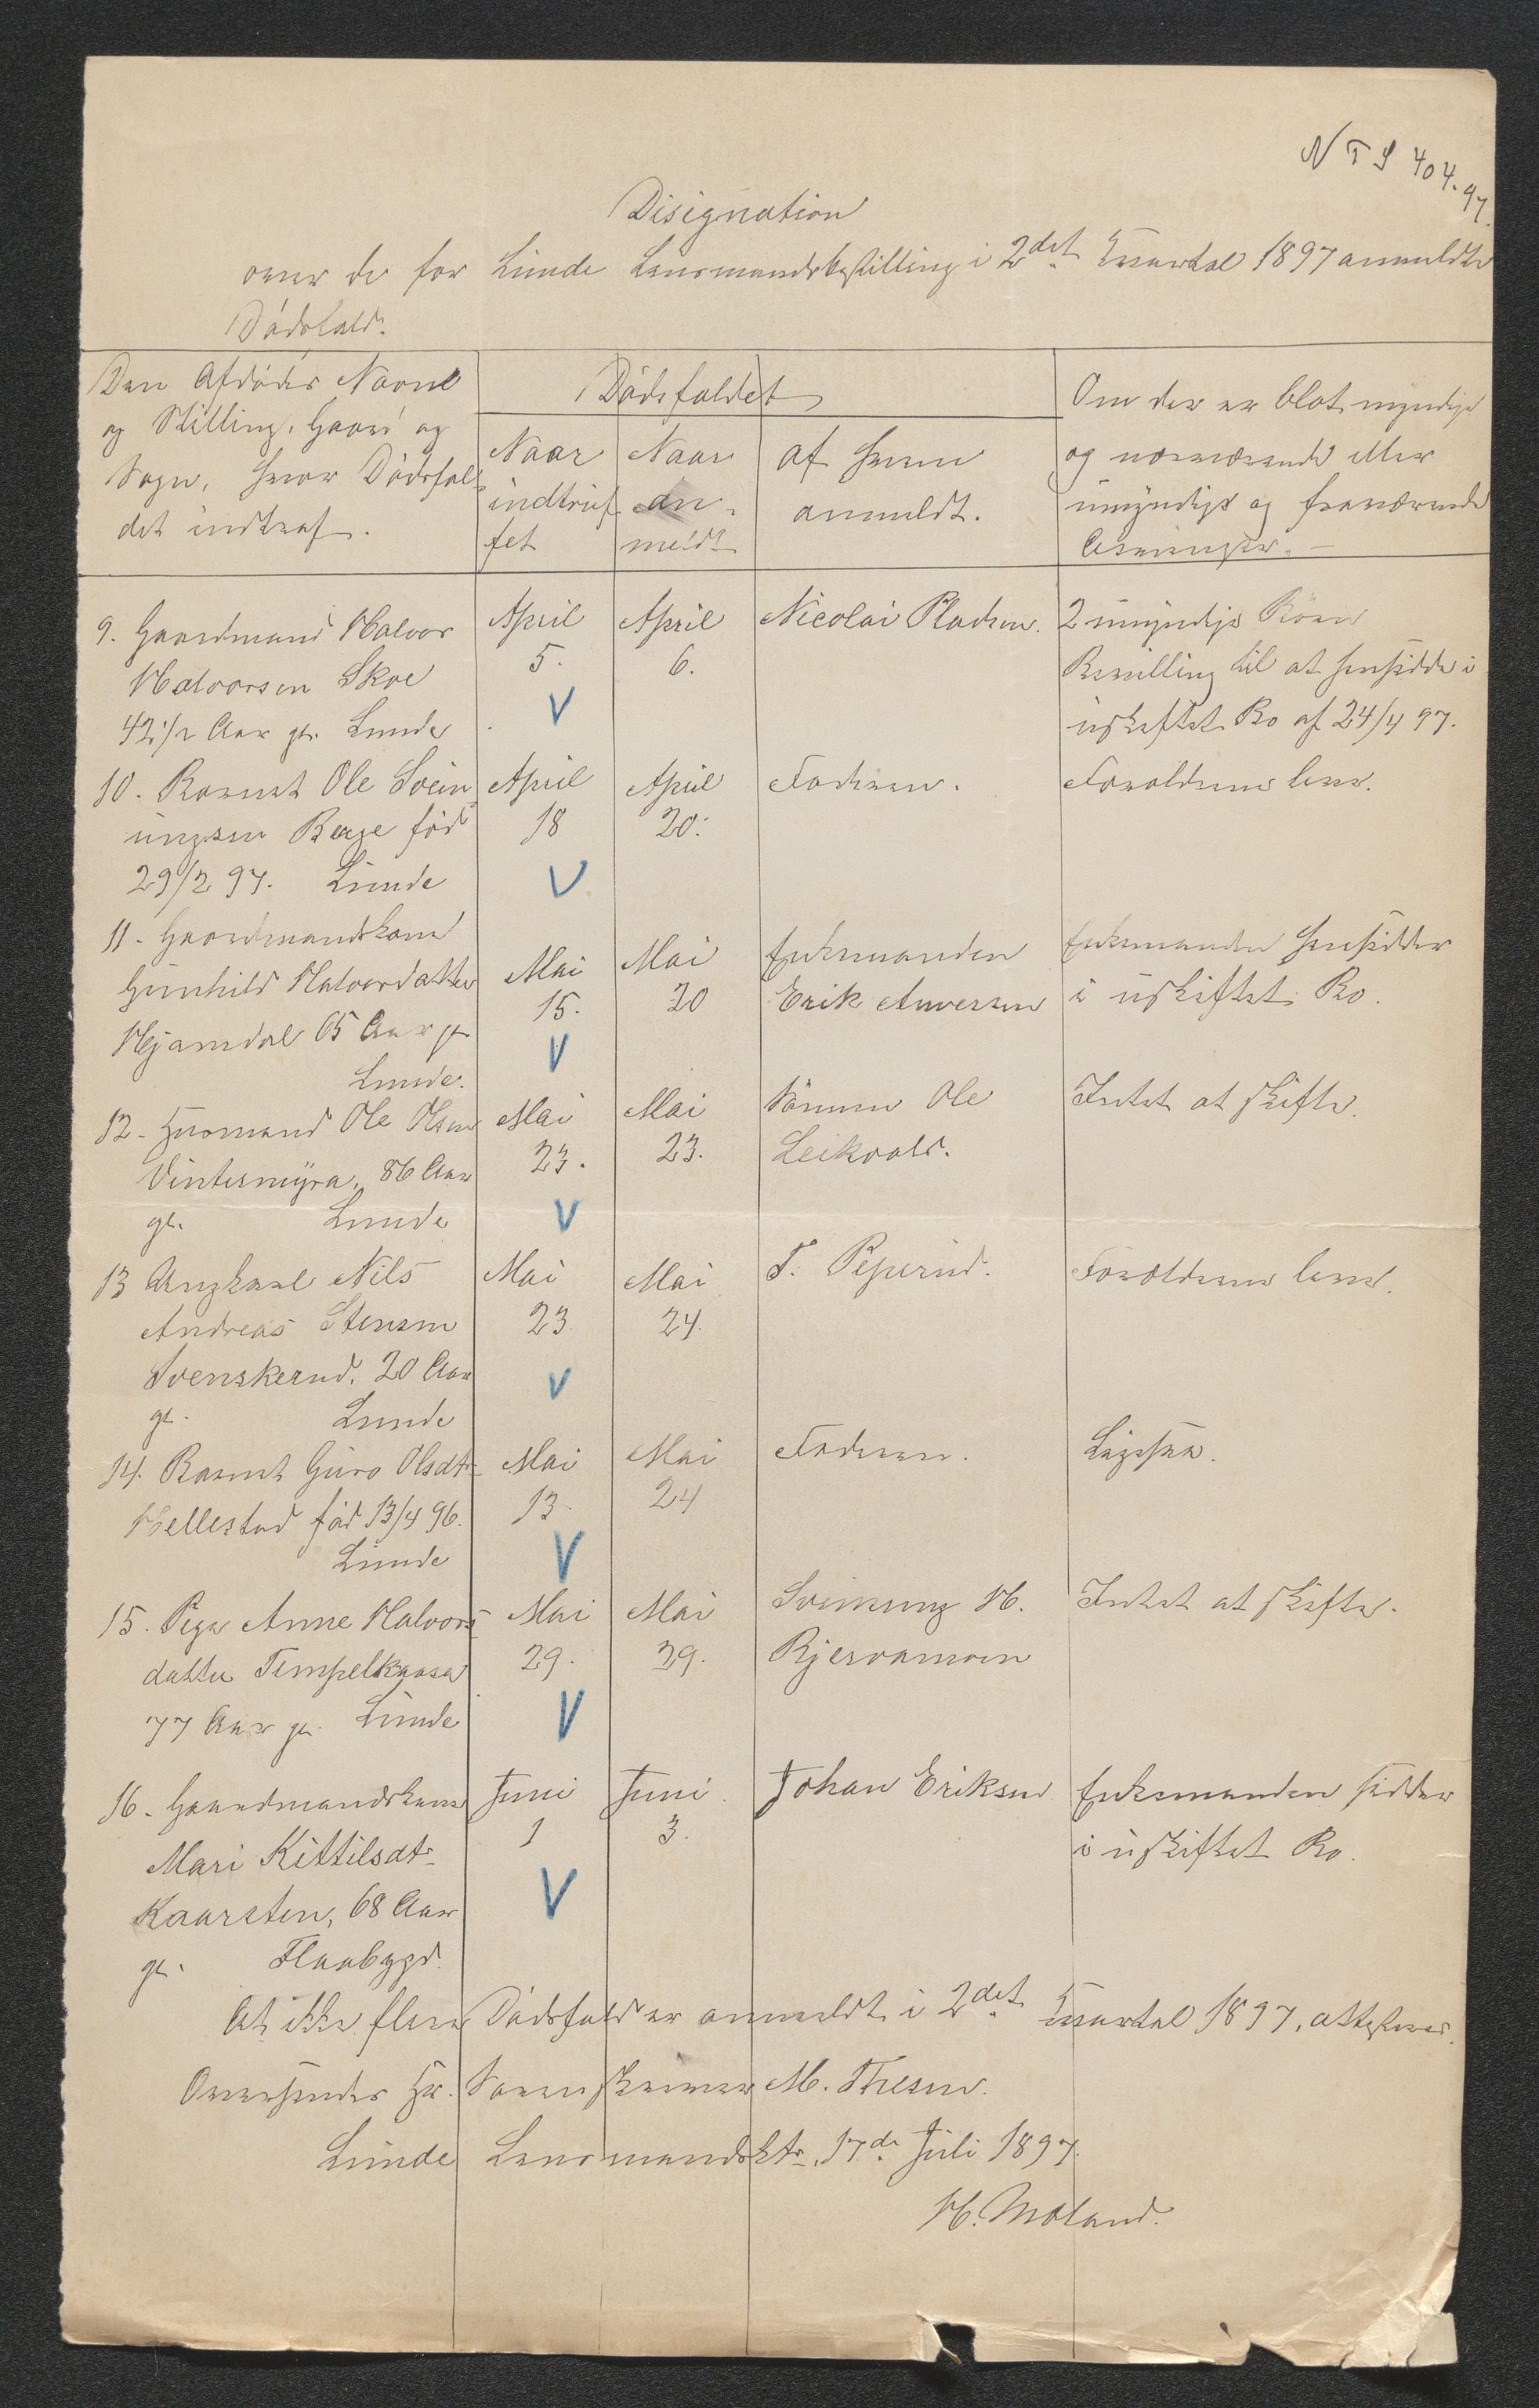 N T S 404.97.
Disignation
over de for Lunde Lensmandsbestilling i 2det Kvartal 1897 anmeldte
Dødsfald.
Den Afdødes Navn
og Stilling, Gaard og
Sogn, hvor Dødsfal-
det indtraf.
Dødsfaldet
Naar
indtruf-
fet
Naar
an-
meldt
af hvem
anmeldt.
Om der er blot myndige
og nærværende eller
umyndige og fraværende
Arvinger. -
9. Gaardmand Halvor
Halvorsen Skoe
42 1/2 Aar gl. Lunde
April
5.
V
April
6.
Nicolai Pladsen.
2 umyndige Børn
Bevilling til at hensidde i
uskiftet Bo af 24/4 97.
10. Barnet Ole Svein-
ungsen Berge fød
29/2 97. Lunde
April
18
V
April
20.
Faderen.
Forældrene lever.
11. Gaardmandskone
Gunhild Halvordatter
Hjamdal 65 Aar gl.
Lunde.
Mai
15.
V
Mai
20
Enkemanden
Erik Anversen
Enkemanden hensidder
i uskiftet Bo.
12. Husmand Ole Olsen
Vintermyra, 86 Aar
gl. Lunde
Mai
23.
V
Mai
23.
Sønnen Ole
Leikvold.
Intet at skifte.
13 Ungkarl Nils
Andreas Stensen
Svenskerud, 20 Aar
gl. Lunde
Mai
23.
V
Mai
24.
T. Peperud.
Forældrene lever.
14. Barnet Guro Olsdtr
Hellestad fød 13/4 96.
Lunde
Mai
13.
V
Mai
24
Faderen.
Ligesaa.
15. Pige Anne Halvors-
datter Tempelkaasa
77 Aar gl. Lunde
Mai
29.
V
Mai
29.
Sveinung H.
Bjervamoen
Intet at skifte.
16. Gaardmandskone
Mari Kittilsdtr.
Kaarsten, 68 Aar
gl. Flaabygd.
Juni
1
V
Juni
3.
Johan Eriksen
Enkemanden sidder
i uskiftet Bo.
At ikke flere Dødsfald er anmeldt i 2det Kvartal 1897, attesteres.
Oversendes Hr. Sorenskriver M. Thesen.
Lunde Lensmandsktr. 17de Juli 1897.
H. Moland.